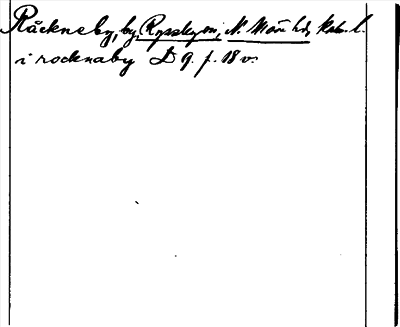 Råckneby, by, Ryssbyn, N. Möre hd, Kalm. l.
i rocknaby D 9. f. 18 v.